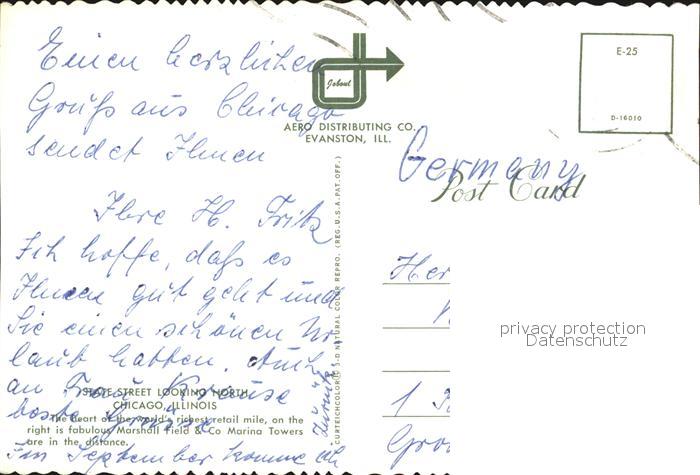 Einen herzlichen
Gruß aus Chicago
sendet Ihnen
Ihre H. Fritz
Ich hoffe, daß es
Ihnen gut geht und
Sie einen schönen Ur-
laub hatten. Auch
an Frau Krause
beste Grüße
Im September komme ich
zurück
Joboul
AERO DISTRIBUTING CO.
EVANSTON, ILL.
E-25
D-16010
Germany
Post Card
CURTEICHCOLOR® 3-D NATURAL COLOR REPRO. (REG. U.S.A. PAT. OFF.)
Her
1
Gro
privacy protection
Datenschutz
STATE STREET LOOKING NORTH
CHICAGO, ILLINOIS
The heart of the world's richest retail mile, on the
right is fabulous Marshall Field & Co Marina Towers
are in the distance.